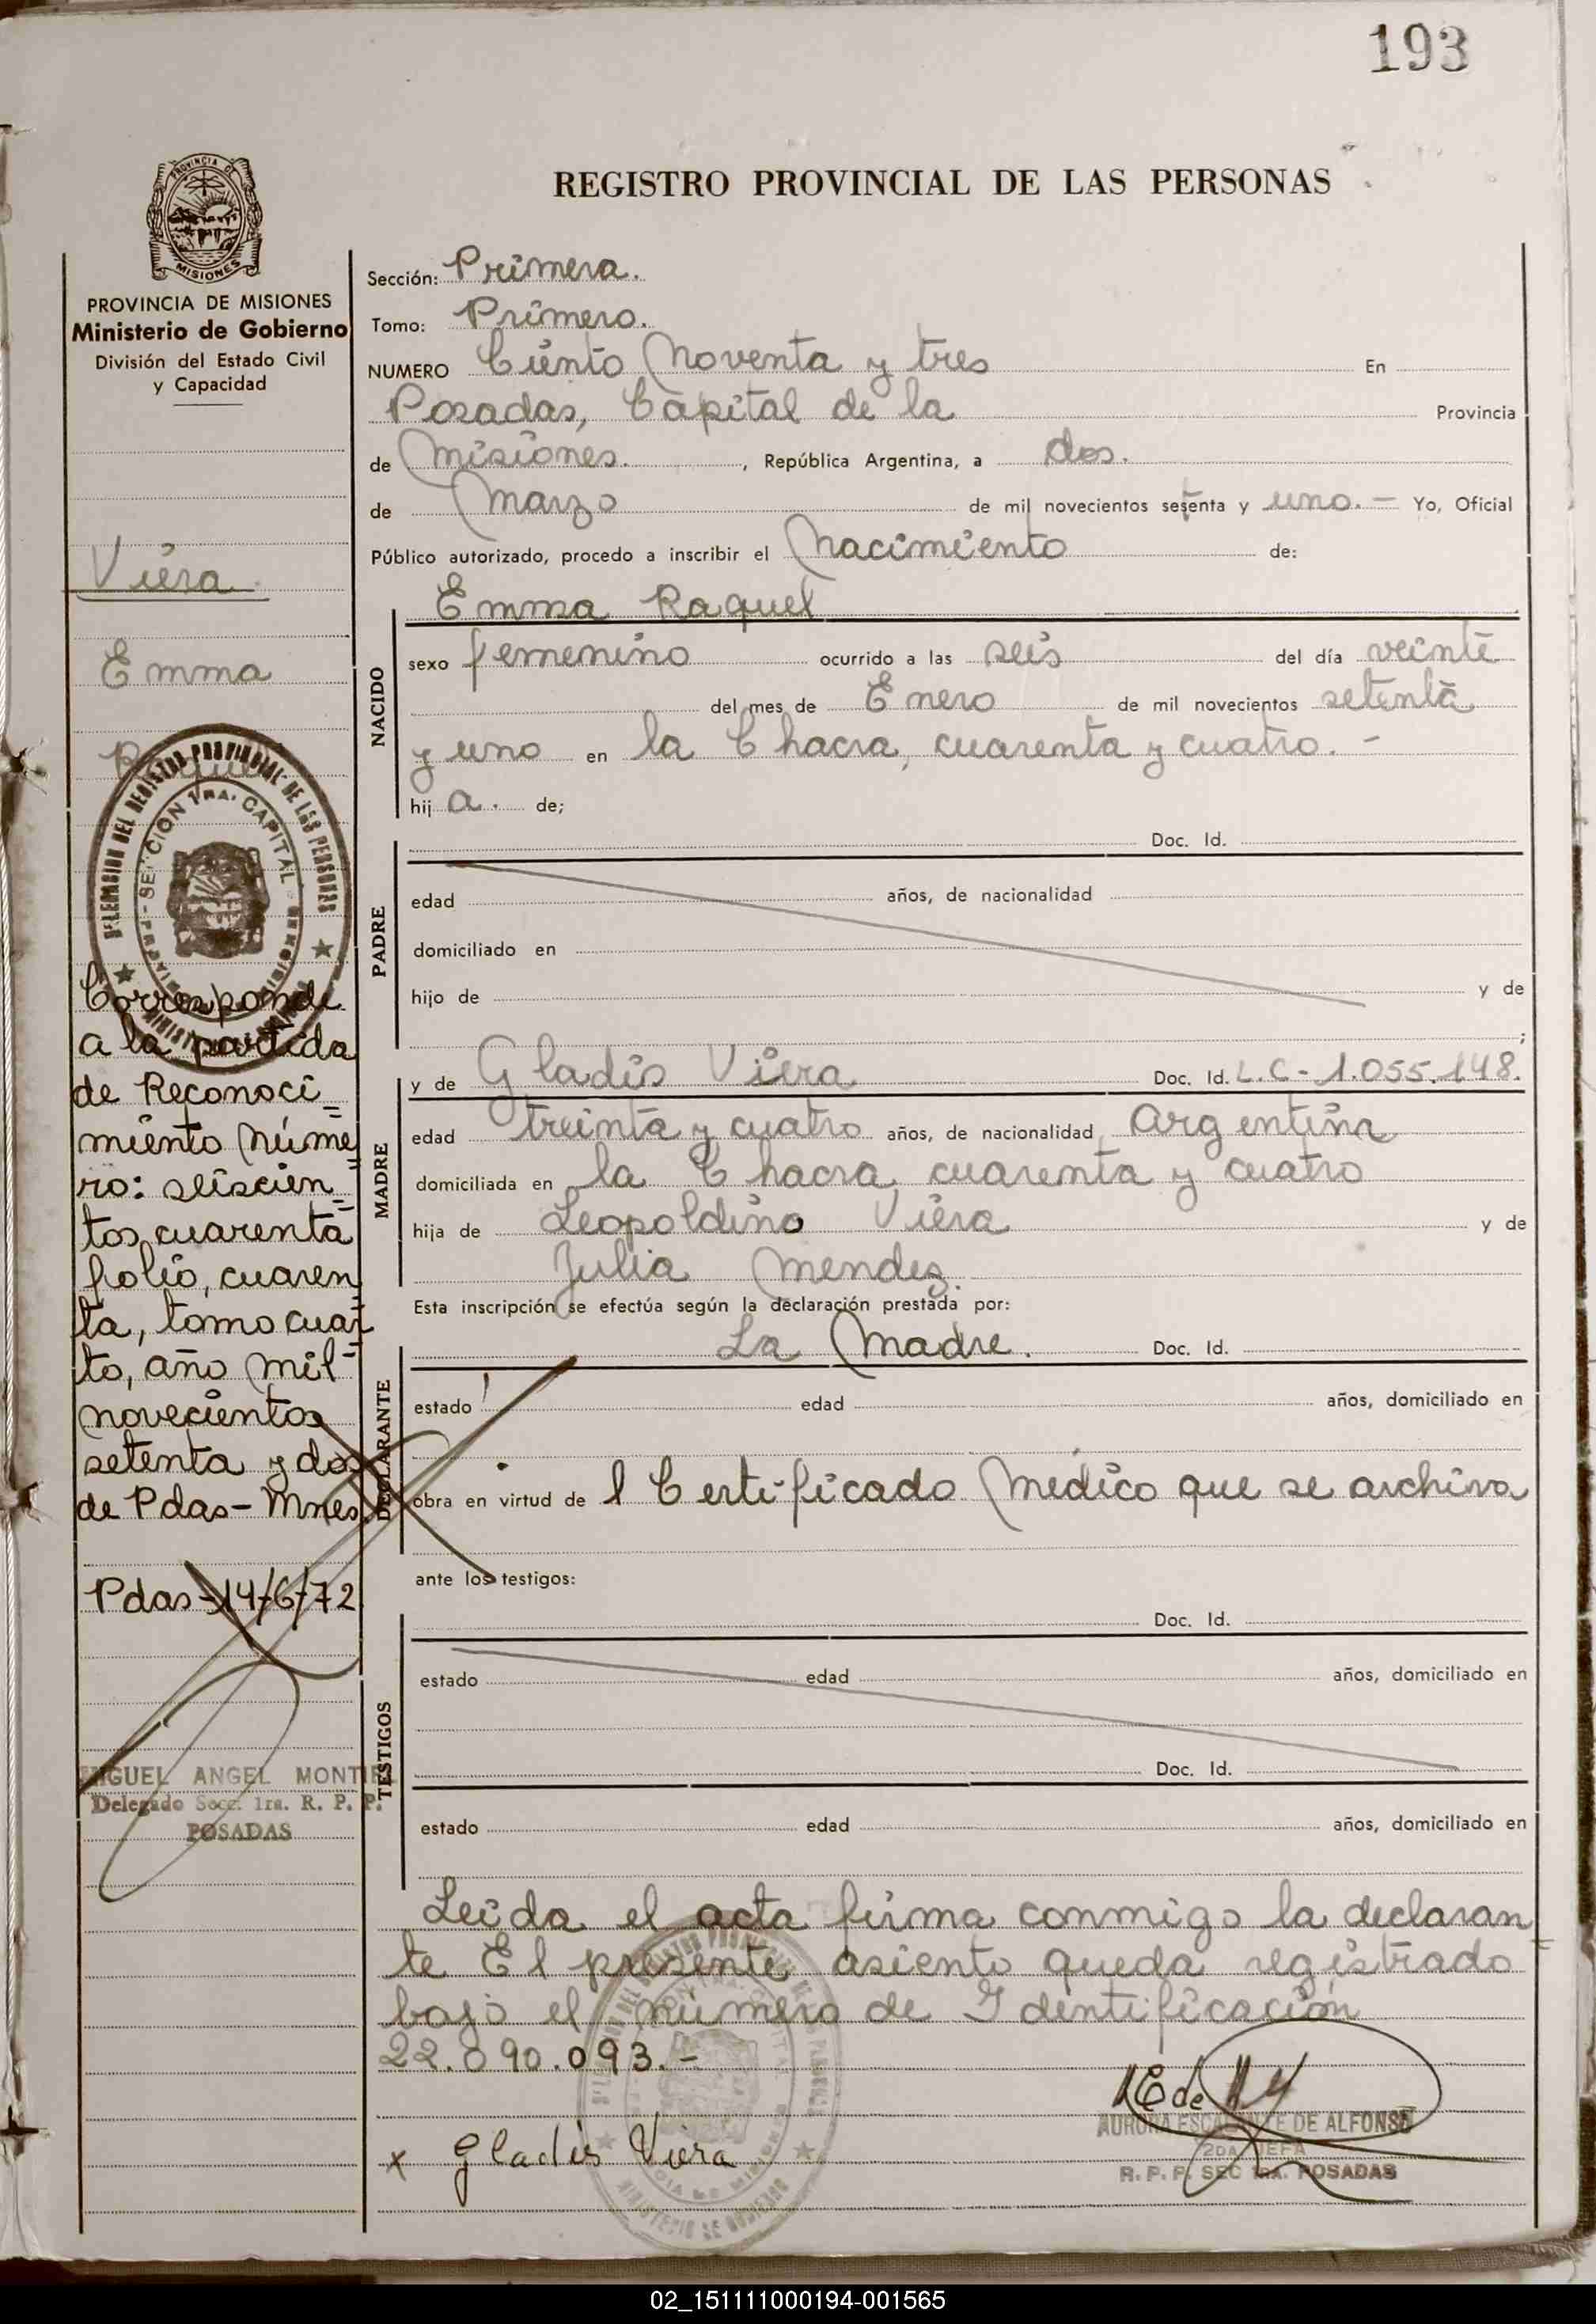 193
PROVINCIA DE
MISIONES
REGISTRO PROVINCIAL DE LAS PERSONAS
PROVINCIA DE MISIONES
Ministerio de Gobierno
División del Estado Civil
y Capacidad
Viera
Emma
Corresponde
a la partida
de Reconoci=
miento núme=
ro: seiscien=
tos cuarenta
folio, cuaren
ta, tomo cuar
to, año mil
novecientos
setenta y dos
de Pdas-Mnes.
Pdas-14/6/72
MIGUEL ANGEL MONTIEL
Delegado Secc. 1ra. R. P. P.
POSADAS
Sección: Primera.
Tomo: Primero.
NUMERO Ciento Noventa y tres En
Posadas, Capital de la Provincia
de Misiones. , República Argentina, a dos.
de Marzo de mil novecientos setenta y uno. — Yo, Oficial
Público autorizado, procedo a inscribir el Nacimiento de:
Emma Raquel
NACIDO
sexo femenino ocurrido a las seis del día veinte
del mes de Enero de mil novecientos setenta
y uno en la Chacra, cuarenta y cuatro. -
hij a. de;
PADRE
Doc. Id.
edad años, de nacionalidad
domiciliado en
hijo de y de
;
MADRE
y de Gladis Viera Doc. Id. L.C-1.055.148.
edad treinta y cuatro años, de nacionalidad Argentina
domiciliada en la Chacra cuarenta y cuatro
hija de Leopoldino Viera y de
Julia Mendez.
Esta inscripción se efectúa según la declaración prestada por:
DECLARANTE
La Madre. Doc. Id.
estado edad años, domiciliado en
obra en virtud de l Certificado Medico que se archiva
ante los testigos:
TESTIGOS
Doc. Id.
estado edad años, domiciliado en
Doc. Id.
estado edad años, domiciliado en
Leida el acta firma conmigo la declaran
te El presente asiento queda registrado
bajo el número de Identificación
22.090.093.-
x Gladis Viera
AURORA ESCALANTE DE ALFONSO
2DA JEFA
R. P. P. SEC 1RA. POSADAS
02_151111000194-001565